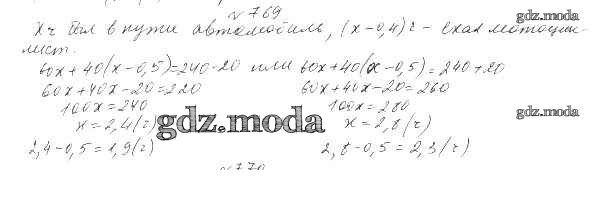 № 769
gdz.moda
Xч был в пути автомобиль, (x-0,4)ч - ехал мотоцик-
лист.
60x+40(x-0,5)=240-20 или 60x+40(x-0,5)=240+20
60x+40x-20=220 60x+40x-20=260
100x=240 100x=280
gdz.moda
x=2,4(ч) x=2,8(ч)
gdz.moda
2,4-0,5=1,9(ч) 2,8-0,5=2,3(ч)
№ 770